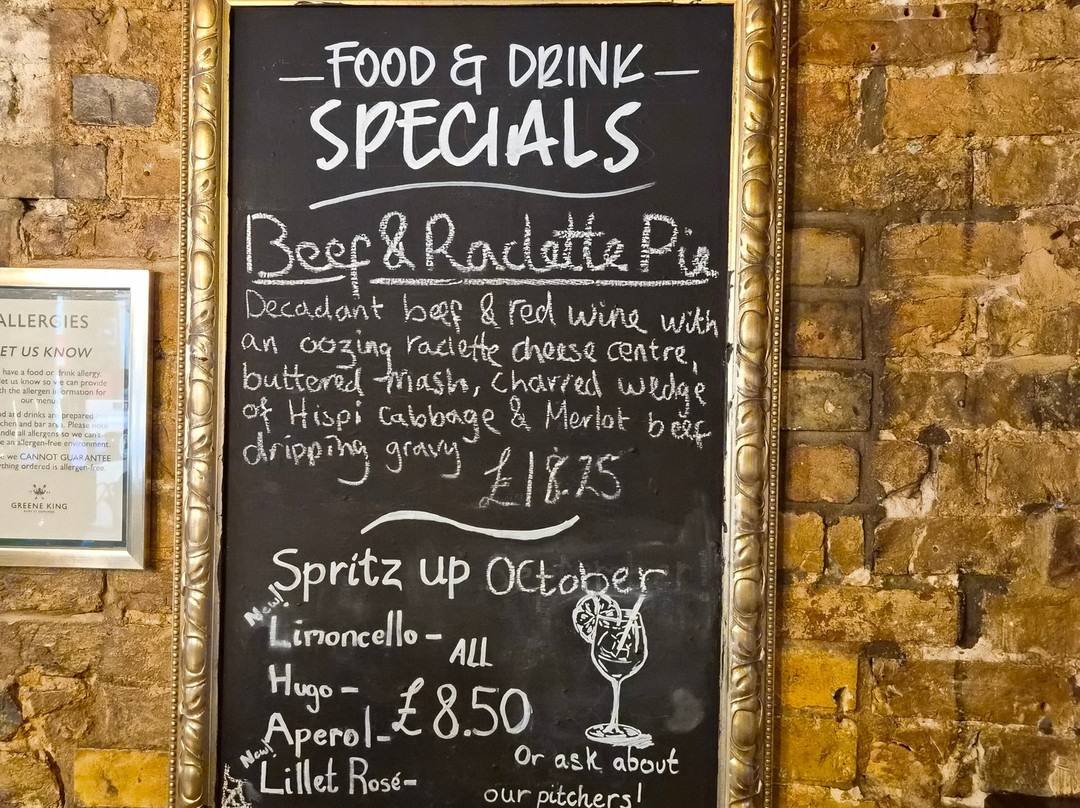 — FOOD & DRINK —
SPECIALS
Beef & Raclette Pie
Decadant beef & red wine with
an oozing raclette cheese centre,
buttered mash, charred wedge
of Hispi Cabbage & Merlot beef
dripping gravy
£18.25
Spritz up October
New!
Limoncello -
ALL
Hugo -
£8.50
Aperol -
New!
Lillet Rosé -
Or ask about
our pitchers!
ALLERGIES
ET US KNOW
have a food or drink allergy
let us know so we can provide
th the allergen information for
our menu
d and drinks are prepared
chen and bar area. Please note
ndle all allergens so we can't
e an allergen-free environment.
e we CANNOT GUARANTEE
ything ordered is allergen-free.
GREENE KING